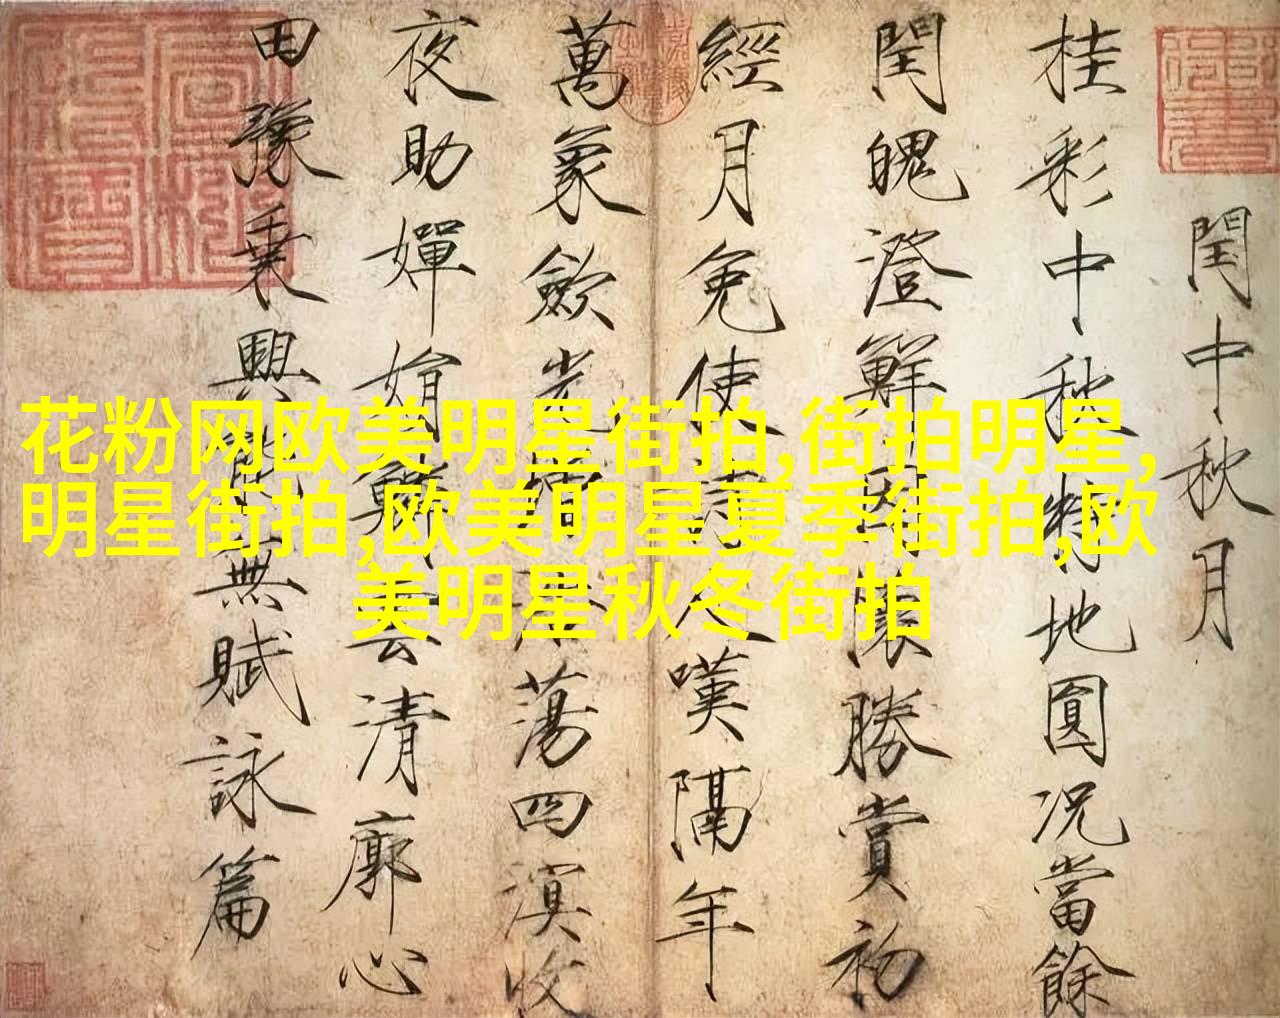 閏中秋月
桂彩中秋特地圓況當餘
閏魄澄鮮因懷勝賞初
經月免使詩人嘆隔年
萬象斂光增浩蕩四溟收
夜助嬋娟鮮雲清廓心
田豫乘興能無賦詠篇
花粉网欧美明星街拍,街拍明星,
明星街拍,欧美明星夏季街拍,欧
美明星秋冬街拍